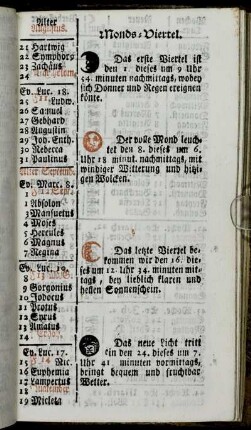 Alter
Augustus.
21 Hartwig
22 Symphor.
23 Zachäus
24
Ev. Luc. 18.
25 Ludw.
26 Samuel
27 Gebhard
28 Augustin
29 Joh. Enth.
30 Rebecca
31 Paulinus
Alter Septemb.
Ev. Marc. 8.
1 Absolon
2 Mansuetus
4 Moses
5 Hercules
6 Magnus
7 Regina
Ev. Luc. 10.
8
9 Gorgonius
10 Jodocus
11 Protus
12 Syrus
13 Amatus
14
Ev. Luc. 17.
15 Nic.
16 Euphemia
17 Lampertus
18
19 Micleta
Monds-Viertel.
Das erste Viertel ist
den 1. dieses um 9 Uhr
54. minuten nachmittags, wobey
sich Donner und Regen ereignen
könte.
Der volle Mond leuch-
tet den 8. dieses um 6.
Uhr 18 minut. nachmittags, mit
windiger Witterung und hitzi-
gen Wolcken.
Das letzte Viertel be-
kommen wir den 16. die-
ses um 12 Uhr 34. minuten mit-
tags, bey lieblich klaren und
hellen Sonnenschein.
Das neue Licht tritt
ein den 24. dieses um 7.
Uhr 41 minuten vormittags,
bringt bequem und fruchtbar
Wetter.